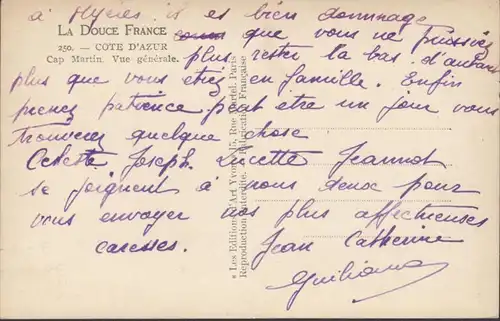 à Hyères il est bien dommage
LA DOUCE FRANCE
que vous ne puissiez
250. — COTE D'AZUR
Cap Martin. Vue générale.
plus rester la bas. d'autant
plus que vous étiez en famille. Enfin
prenez patience peut etre un jour vous
trouverez quelque chose
Celeste Joseph. Lucette Jeannot
se joignent à nous deux pour
vous envoyer nos plus affectueuses
caresses. Jean Catherine
Giuliana
« Les Editions d'Art Yvon », 15, Rue Martel, Paris
Reproduction Interdite. Fabrication Française